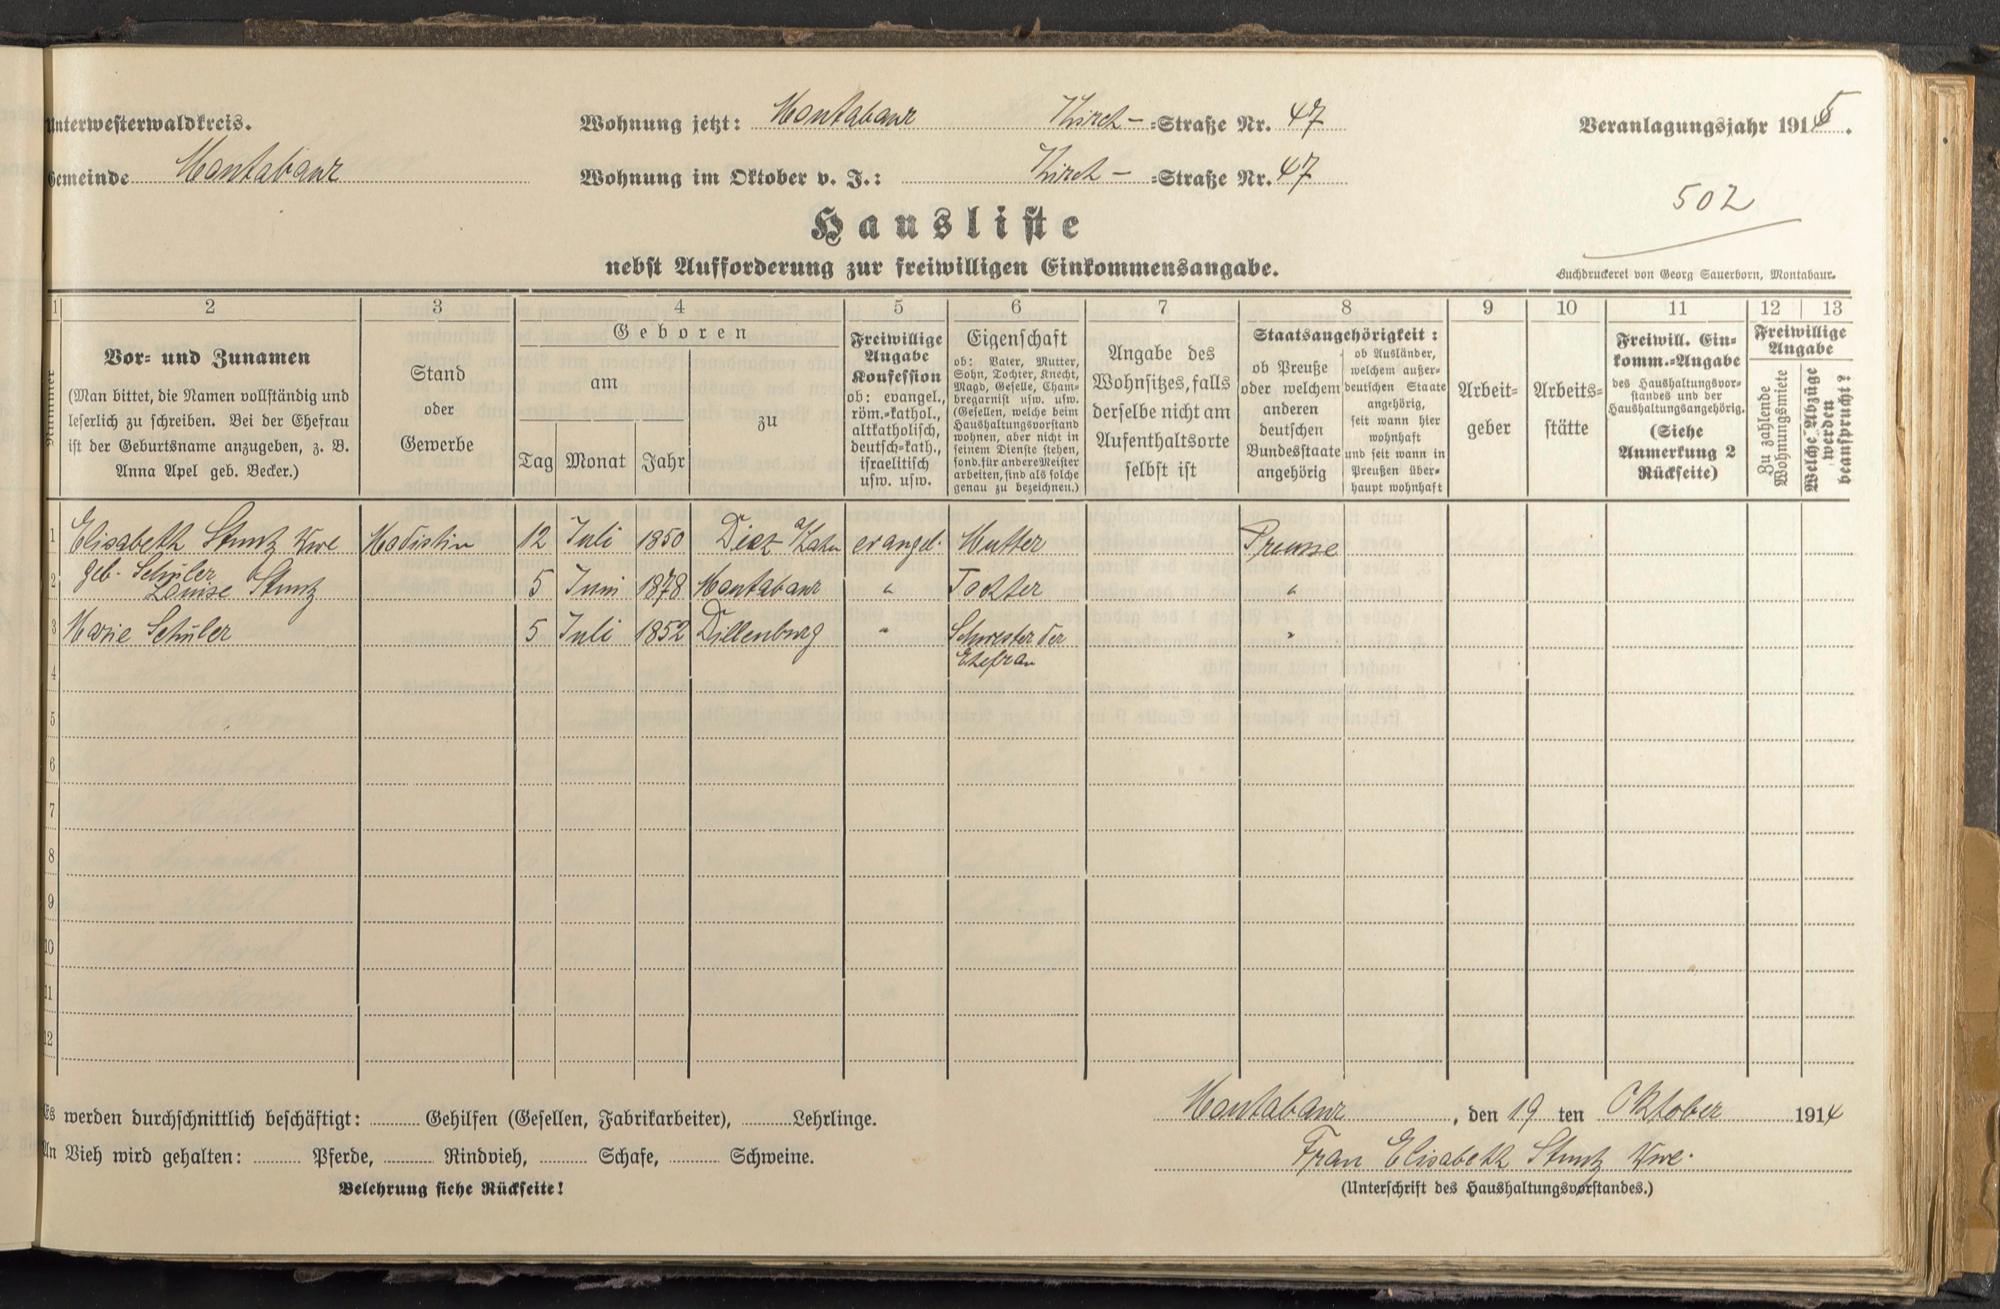 Unterwesterwaldkreis.
Wohnung jetzt: Montabaur Kirch- =Straße Nr. 47
Veranlagungsjahr 1915.
Gemeinde Montabaur
Wohnung im Oktober v. J.: Kirch- =Straße Nr. 47
502
Hausliste
nebst Aufforderung zur freiwilligen Einkommensangabe.
Buchdruckerei von Georg Sauerborn, Montabaur.
1 2 3 4 5 6 7 8 9 10 11 12 13
Nummer
Vor- und Zunamen
(Man bittet, die Namen vollständig und
leserlich zu schreiben. Bei der Ehefrau
ist der Geburtsname anzugeben, z. B.
Anna Apel geb. Becker.)
Stand
oder
Gewerbe
Geboren
am
Tag Monat Jahr
zu
Freiwillige
Angabe
Konfession
ob: evangel.,
röm.-kathol.,
altkatholisch,
deutsch-kath.,
israelitisch
usw. usw.
Eigenschaft
ob: Vater, Mutter,
Sohn, Tochter, Knecht,
Magd, Geselle, Cham-
bregarnist usw. usw.
(Gesellen, welche beim
Haushaltungsvorstand
wohnen, aber nicht in
seinem Dienste stehen,
sond. für andere Meister
arbeiten, sind als solche
genau zu bezeichnen.)
Angabe des
Wohnsitzes, falls
derselbe nicht am
Aufenthaltsorte
selbst ist
Staatsangehörigkeit:
ob Preuße
oder welchem
anderen
deutschen
Bundesstaate
angehörig
ob Ausländer,
welchem außer-
deutschen Staate
angehörig,
seit wann hier
wohnhaft
und seit wann in
Preußen über-
haupt wohnhaft
Arbeit-
geber
Arbeits-
stätte
Freiwill. Ein-
komm.-Angabe
des Haushaltungsvor-
standes und der
Haushaltungsangehörig.
(Siehe
Anmerkung 2
Rückseite)
Freiwillige
Angabe
Zu zahlende
Wohnungsmiete
Welche Abzüge
werden
beansprucht?
1 Elisabeth Stuntz Wwe Modistin 12 Juli 1850 Diez a/Lahn evangel. Mutter Preusse
geb. Schüler
2 Louise Stuntz 5 Juni 1878 Montabaur " Tochter "
3 Marie Schüler 5 Juli 1852 Dillenburg " Schwester der
Ehefrau "
4
5
6
7
8
9
10
11
12
Es werden durchschnittlich beschäftigt: Gehilfen (Gesellen, Fabrikarbeiter), Lehrlinge.
An Vieh wird gehalten: Pferde, Rindvieh, Schafe, Schweine.
Belehrung siehe Rückseite!
Montabaur, den 19 ten Oktober 1914
Frau Elisabeth Stuntz Wwe.
(Unterschrift des Haushaltungsvorstandes.)